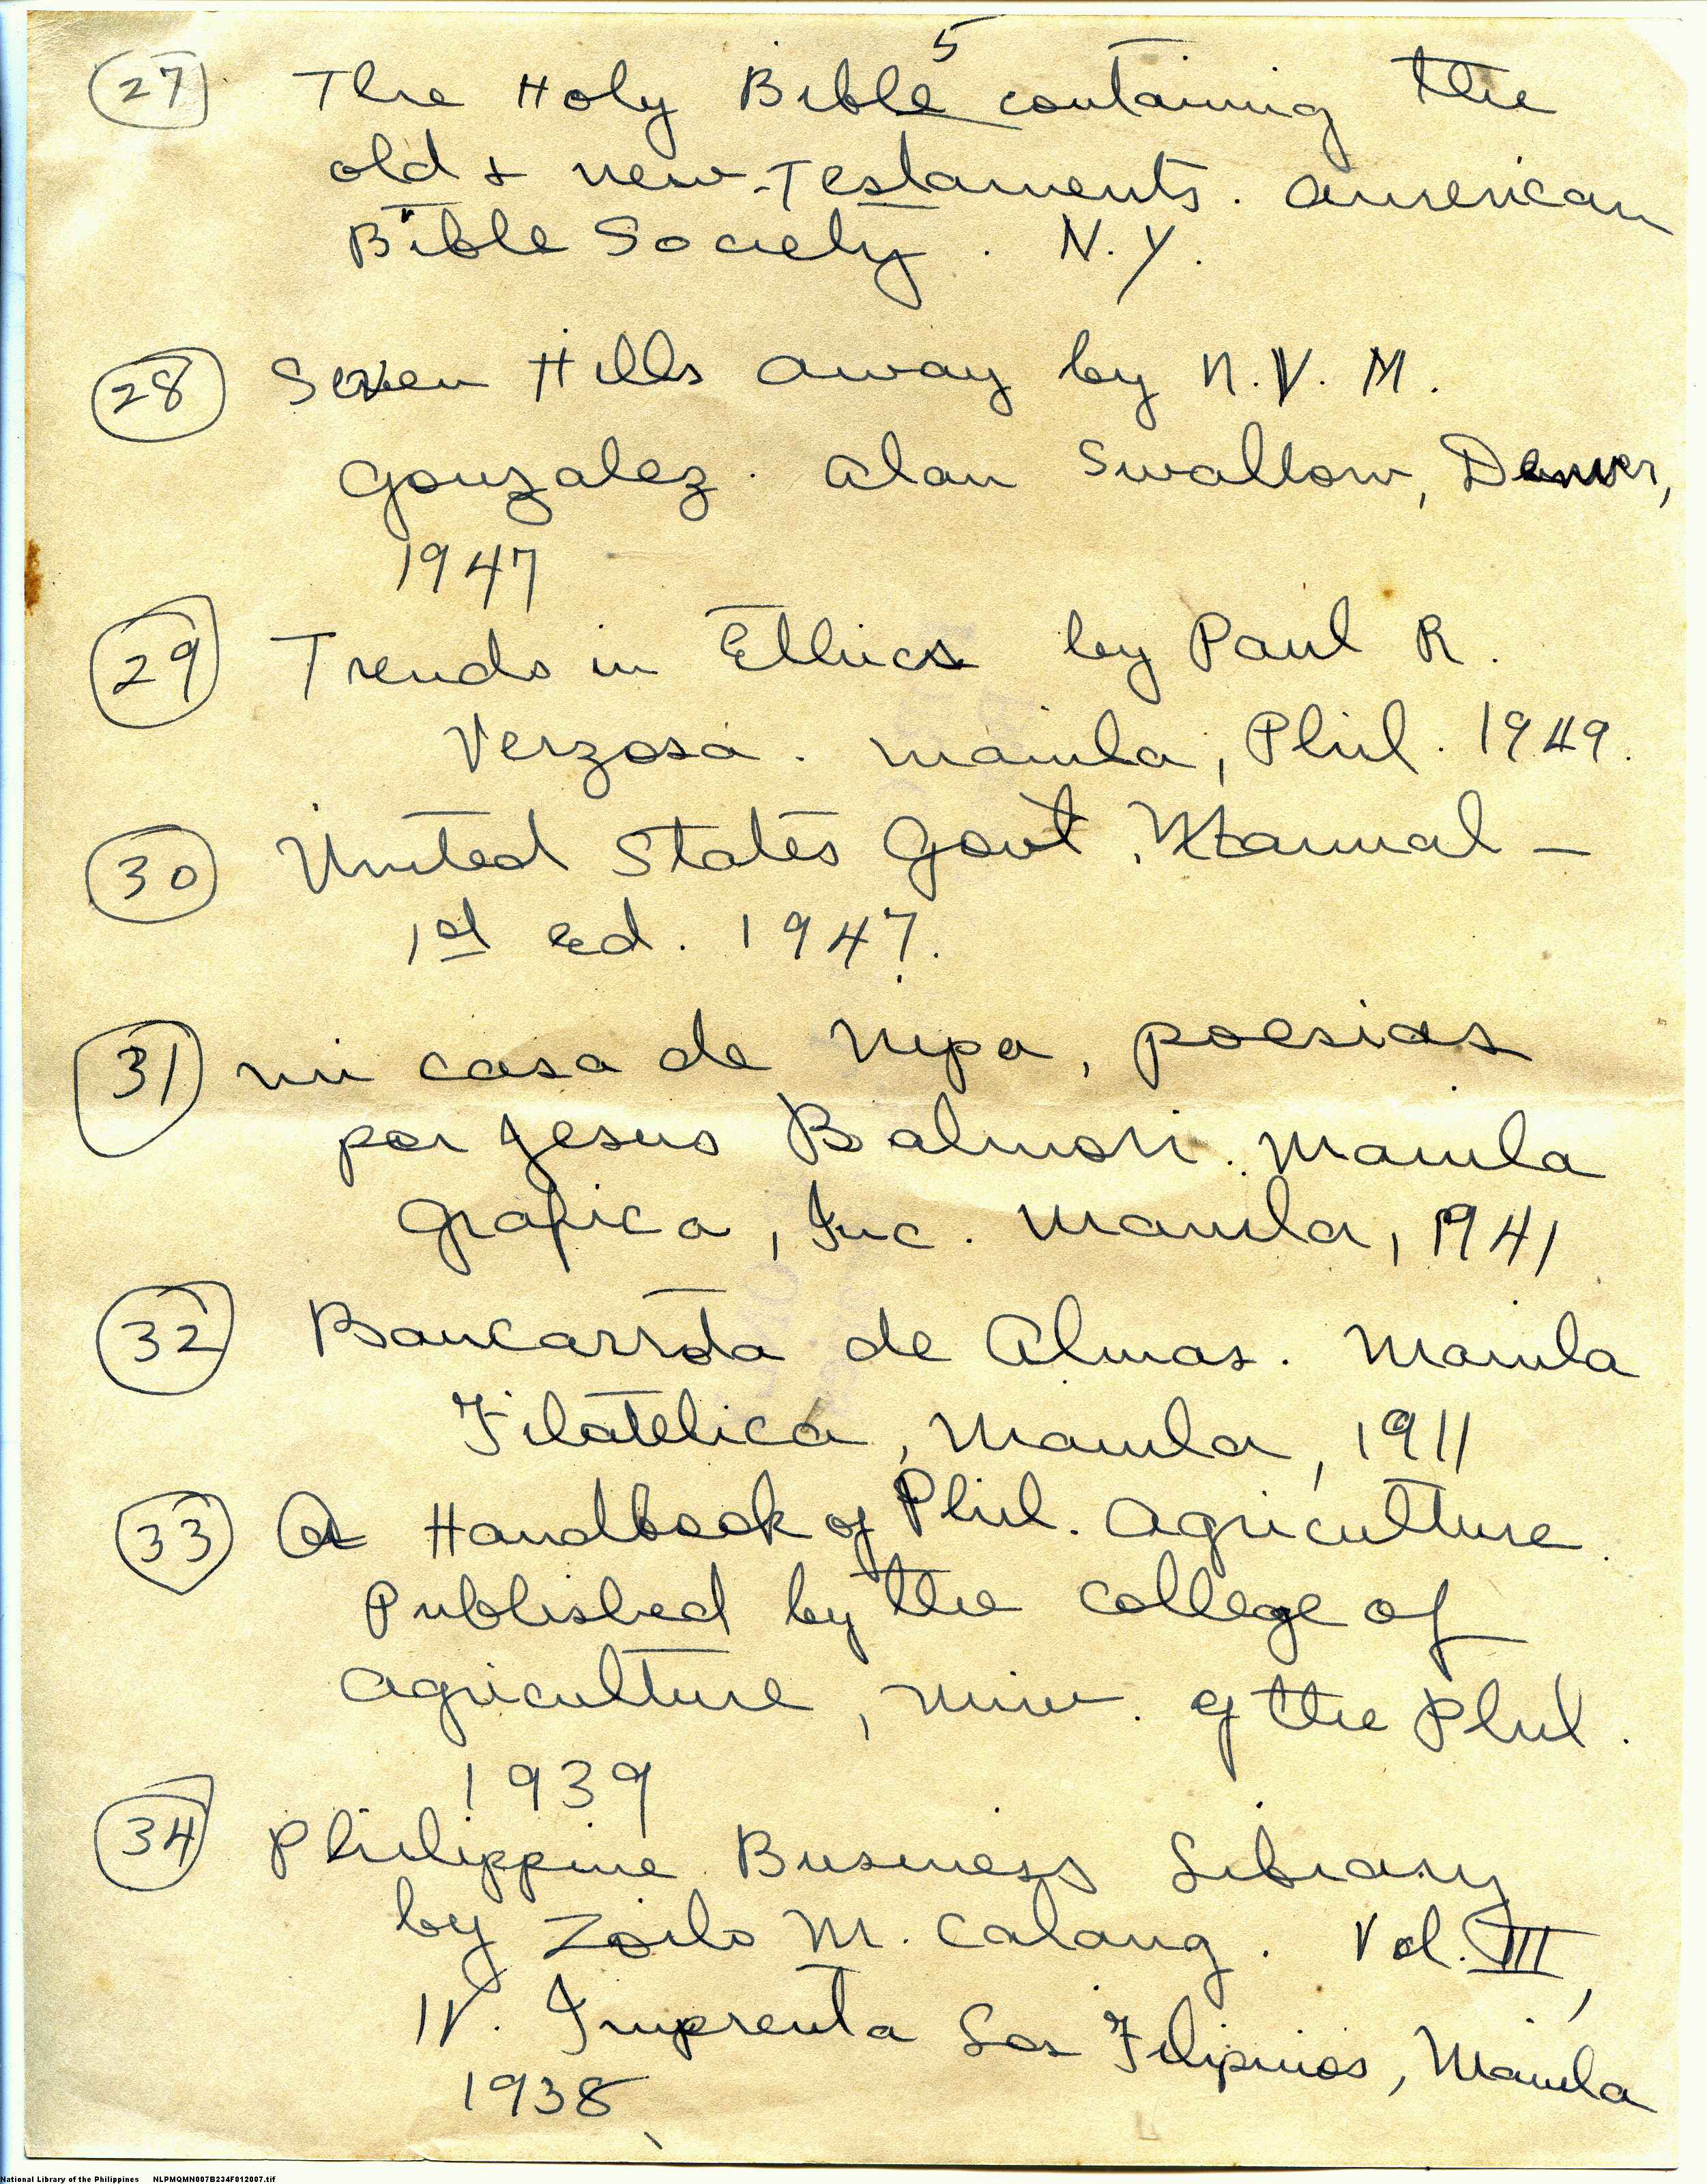 5
27 The Holy Bible containing the
old & new Testaments. American
Bible Society. N.Y.
28 Seven Hills Away by N.V.M.
Gonzalez. Alan Swallow, Denver,
1947
29 Trends in Ethics by Paul R.
Verzosa. Manila, Phil. 1949.
30 United States Govt. Manual –
1st ed. 1947.
31 Mi casa de Nipa, poesias
por Jesus Balmori. Manila
Grafica, Inc. Manila, 1941
32 Bancarrota de Almas. Manila
Filatelica, Manila, 1911
33 A Handbook of Phil. Agriculture.
Published by the College of
Agriculture, Univ. of the Phil.
1939
34 Philippine Business Library
by Zoilo M. Galang. Vol. III,
IV. Imprenta Los Filipinos, Manila
1938
National Library of the Philippines NLPMQMN007B234F012007.tif